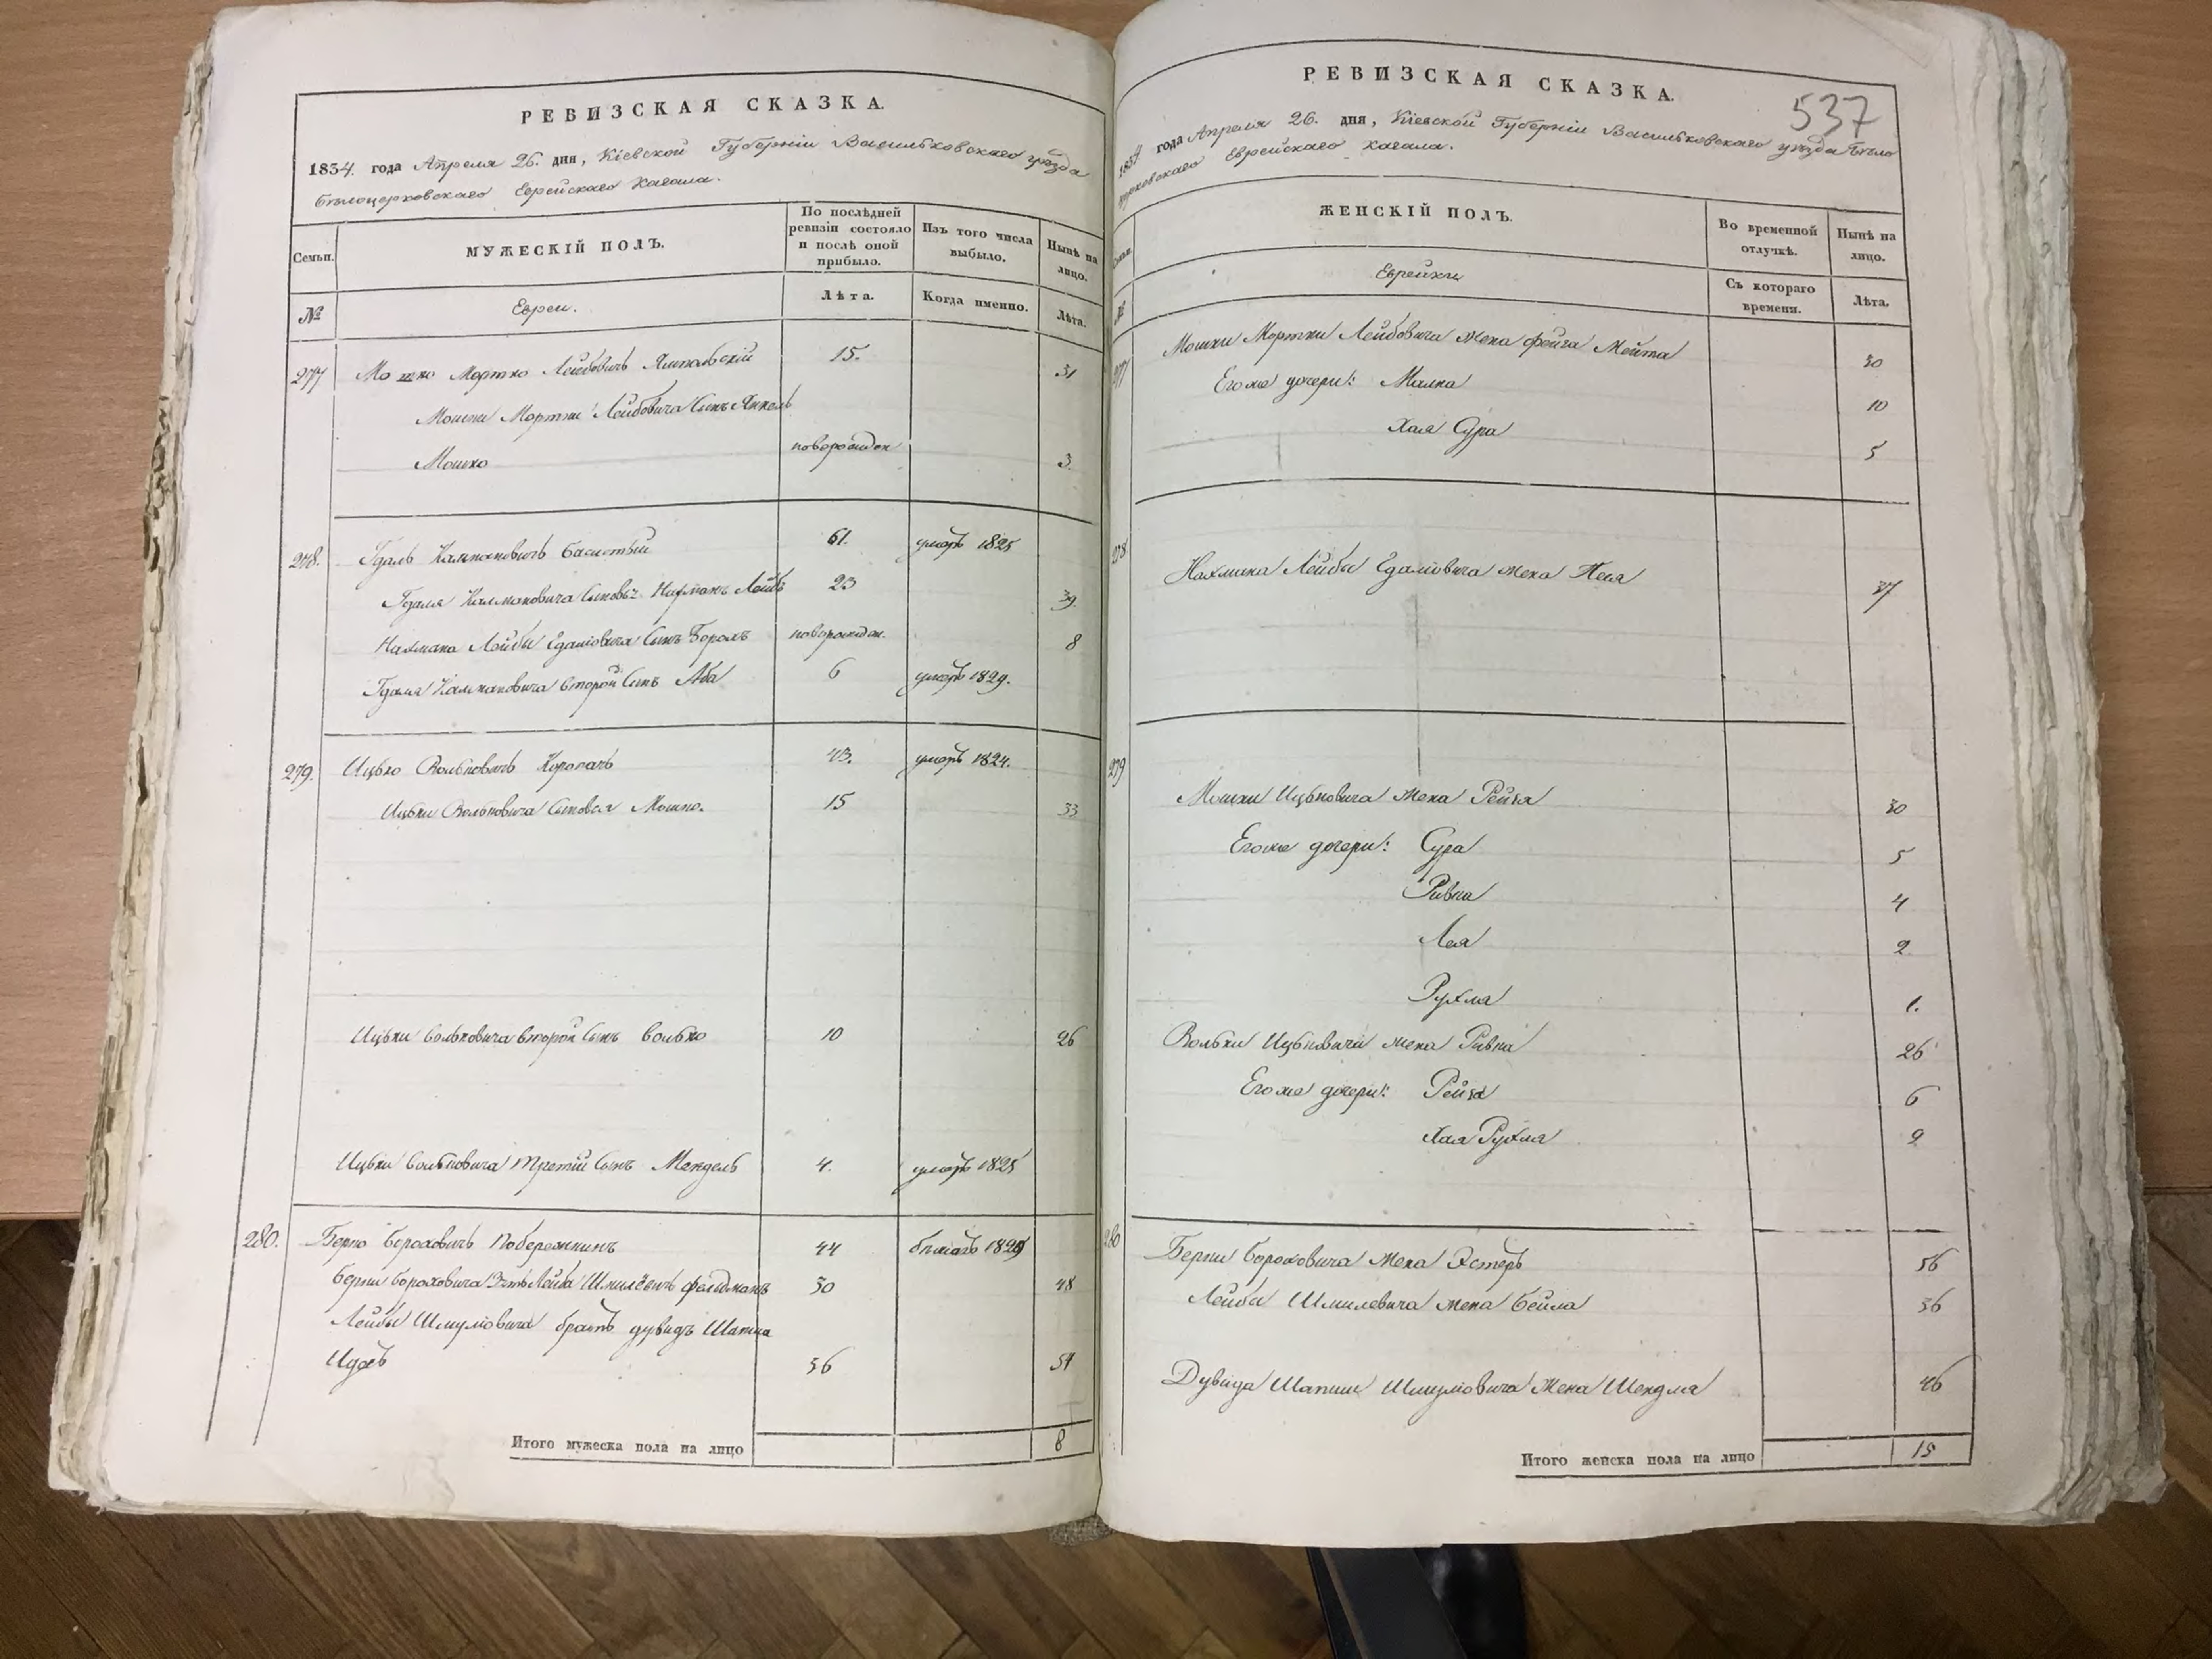 РЕВИЗСКАЯ СКАЗКА.
1834. года Апреля 26. дня, Кіевской Губерніи Васильковскаго уезда
Бѣлоцерковскаго Еврейскаго Кагала.
Семьи.
МУЖЕСКІЙ ПОЛЪ.
По послѣдней
ревизіи состояло
и послѣ оной
прибыло.
Изъ того числа
выбыло.
Нынѣ на
лицо.
№
Евреи.
Лѣта.
Когда именно.
Лѣта.
277 Мошко Мортко Лейбовичъ Ямпольскій 15. 31
Мошки Мортки Лейбовича Сынъ Янкель
Мошко новорожден 3.
278. Гдаль Калмановичъ 61. умеръ 1825
Гдаля Калмановича Сыновья Нахманъ Лейбъ 23 39
Нахмана Лейбы Гдаліовича Сынъ Борохъ новорожден. 8
Гдаля Калмановича второй Сынъ Аба 6 умеръ 1829.
279. Ицько Вольковичъ 43. умеръ 1824.
Ицьки Вольковича Сыновья Мошко. 15 33
Ицьки Вольковича второй СынъВолько 10 26
Ицьки Вольковича третій Сынъ Мендель 4. умеръ 1825
280. Берко Бороховичъ Побережкинъ 44
Берки Бороховича Зять Лейба Шмилевичъ Фельдманъ 30 48
Лейбы Шмуліовича братъ Дувидъ Шапша
36 54
Итого мужеска пола на лицо 8
РЕВИЗСКАЯ СКАЗКА.
537
1834 года Апреля 26. дня, Кіевской Губерніи Васильковскаго уезда Бѣло
церковскаго Еврейскаго Кагала.
Семьи.
ЖЕНСКІЙ ПОЛЪ.
Во временной
отлучкѣ.
Нынѣ на
лицо.
№
Еврейки
Съ котораго
времени.
Лѣта.
277 Мошки Мортки Лейбовича жена Фейга Мейта 30
Его же дочери: Малка 10
Хая Сура 5
278 Нахмана Лейбы Гдаліовича жена Песя 37
279
Мошки Ицьковича жена Рейзя 30
Его же дочери: Сура 5
Ривка 4
Лея 2
Рухля 1.
Вольки Ицьковича жена Ривка 26
Его же дочери: Рейзя 6
Хая Рухля 2
280 Берки Бороховича жена Эстеръ 56
Лейбы Шмилевича жена Бейла 36
Дувида Шапши Шмуліовича жена Шендля 46
Итого женска пола на лицо 15